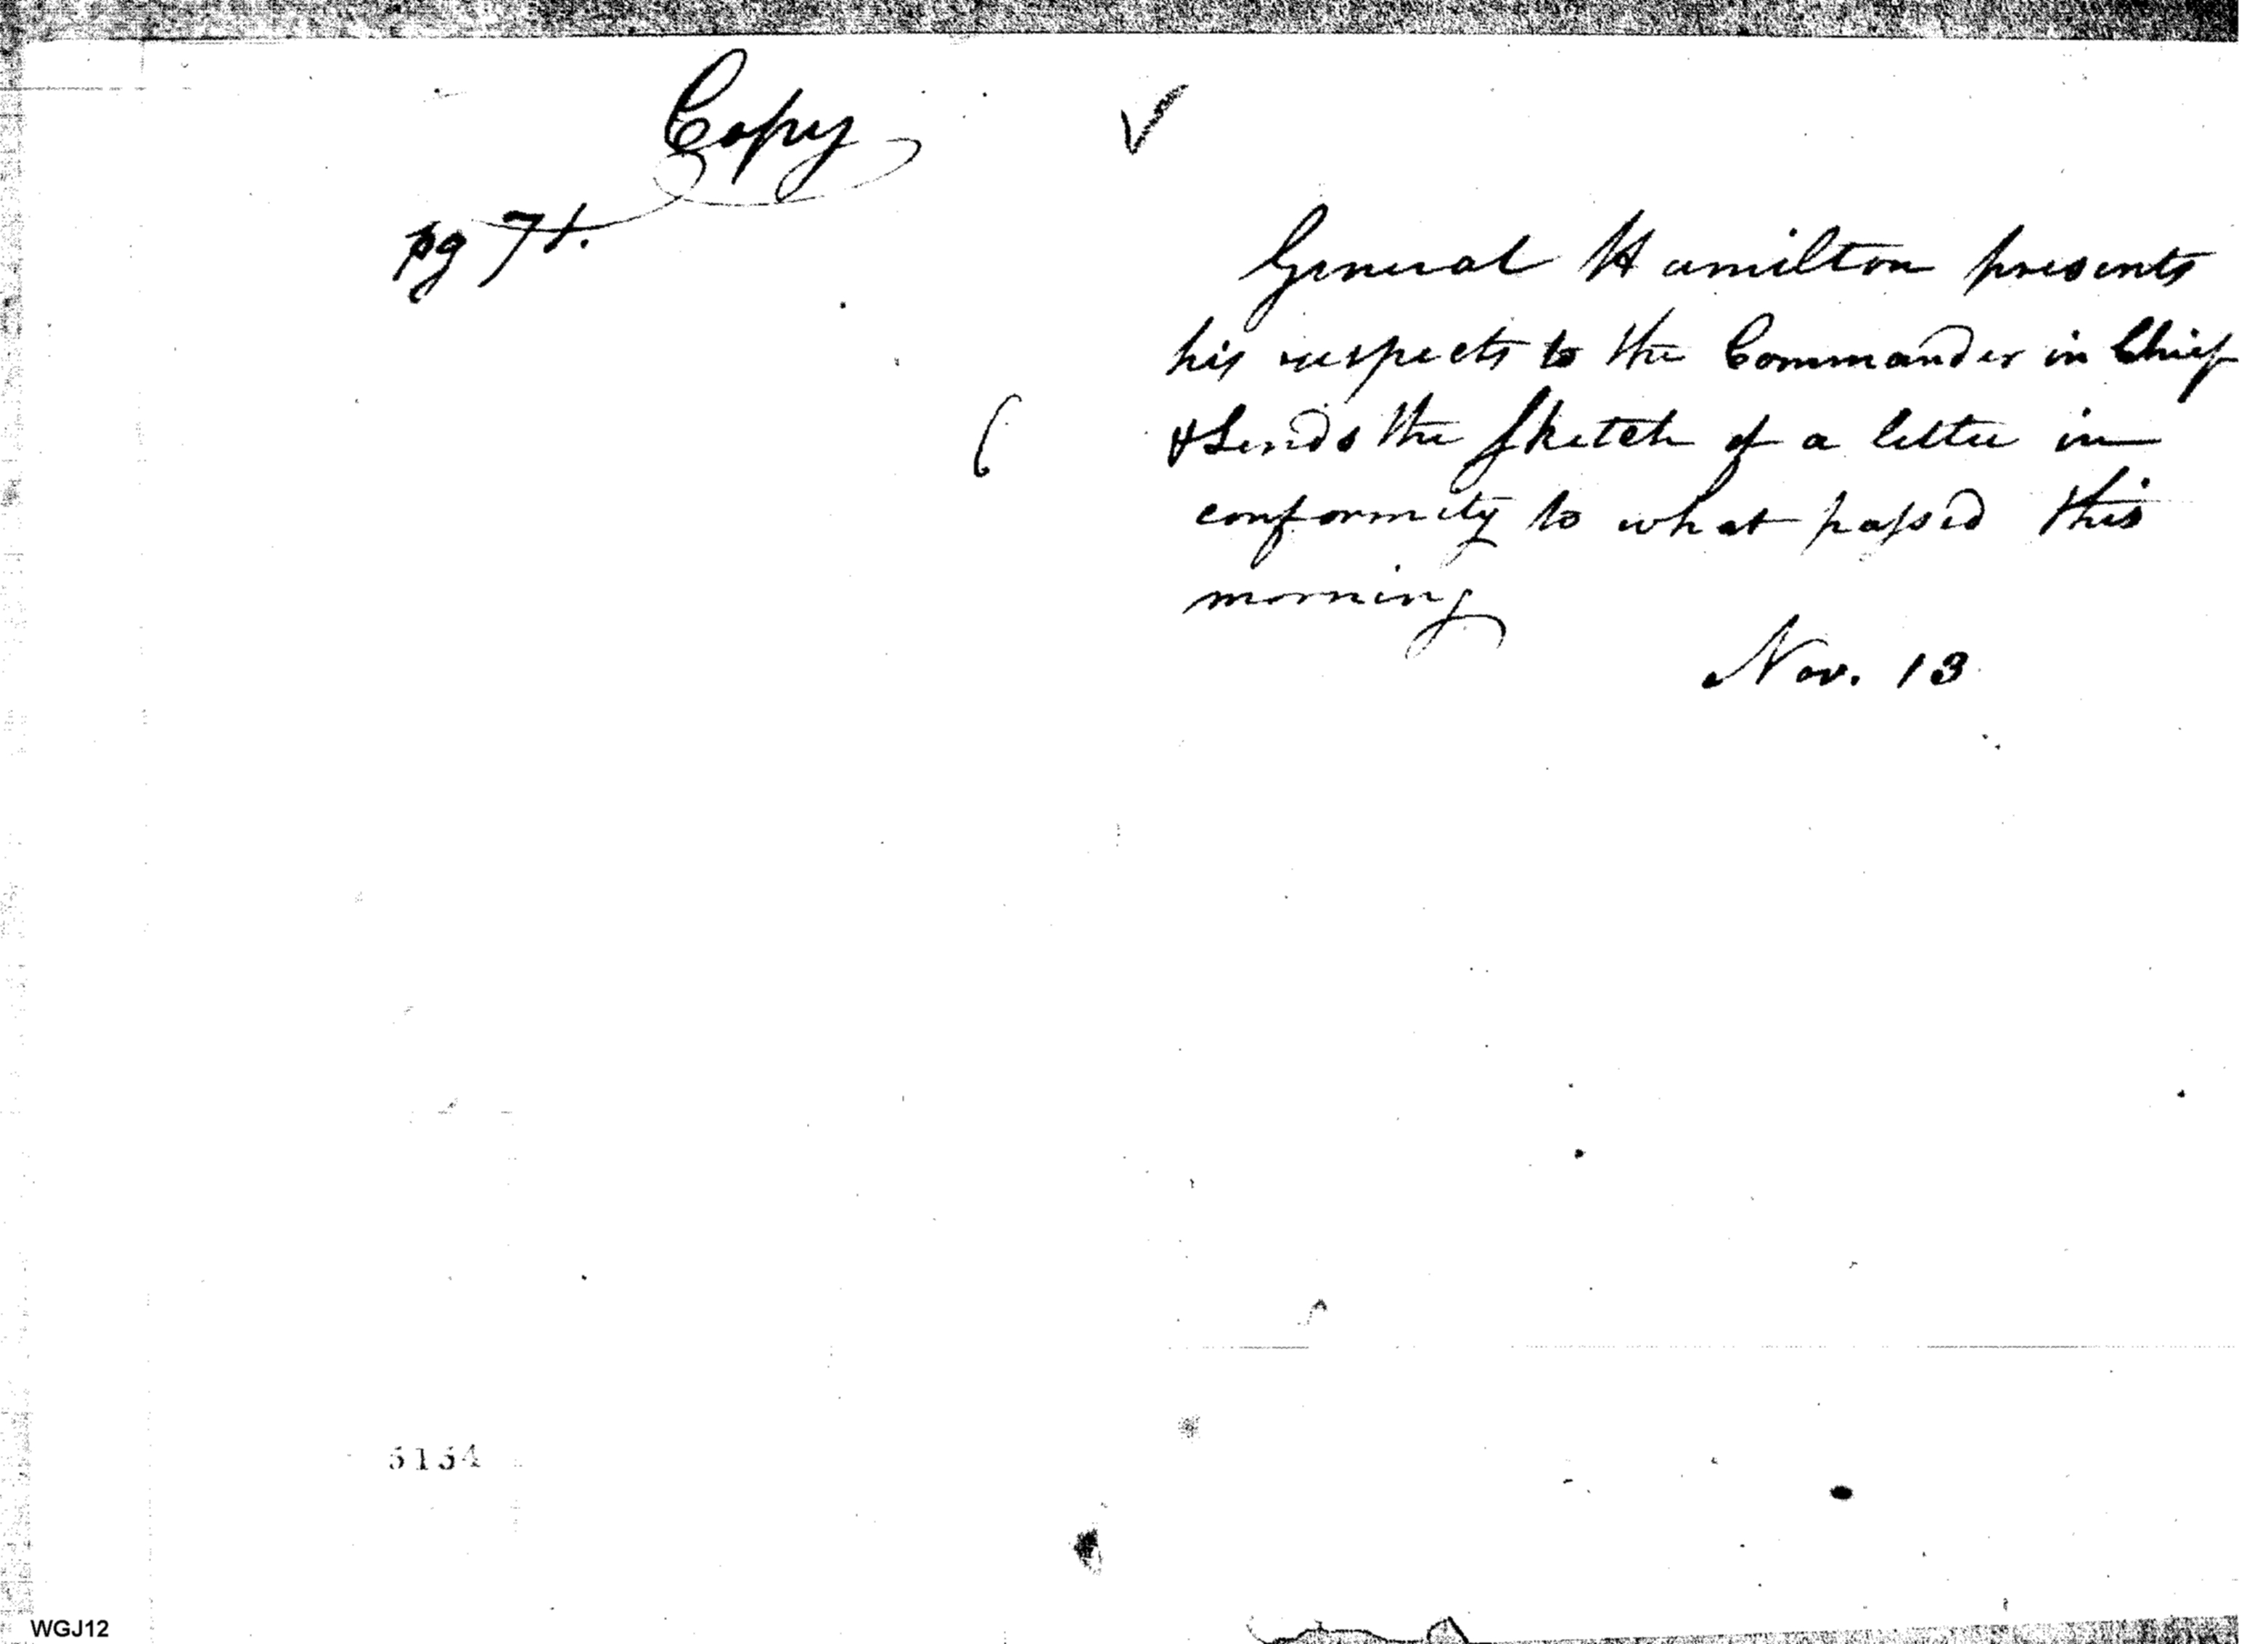 Copy
pg 71.
General Hamilton presents
his respects to the Commander in Chief
& Sends the sketch of a letter in
conformity to what passed this
morning
Nov. 13
5134
WGJ12